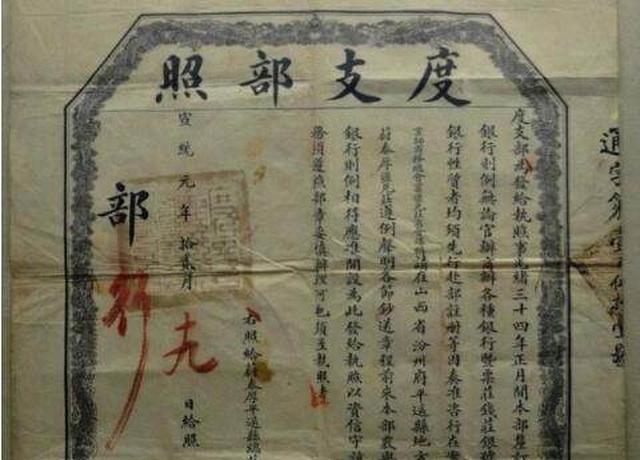 度支部照
通字第壹
度支部為發給執照事光緒三十四年正月間本部釐訂
銀行則例無論官辦商辦各種銀行暨票莊錢莊銀號
銀行性質者均須先行赴部註冊等因奏准咨行在案
在山西省汾州府平遙縣地方
蔚泰厚匯兌莊遵例聲明各節鈔送章程前來本部覈與
銀行則例相符應准開設為此發給執照以資信守該
務須遵照部章妥慎辦理可也須至執照者
右照給蔚泰厚平遙縣總莊
宣統元年拾貳月十九日給照
部行